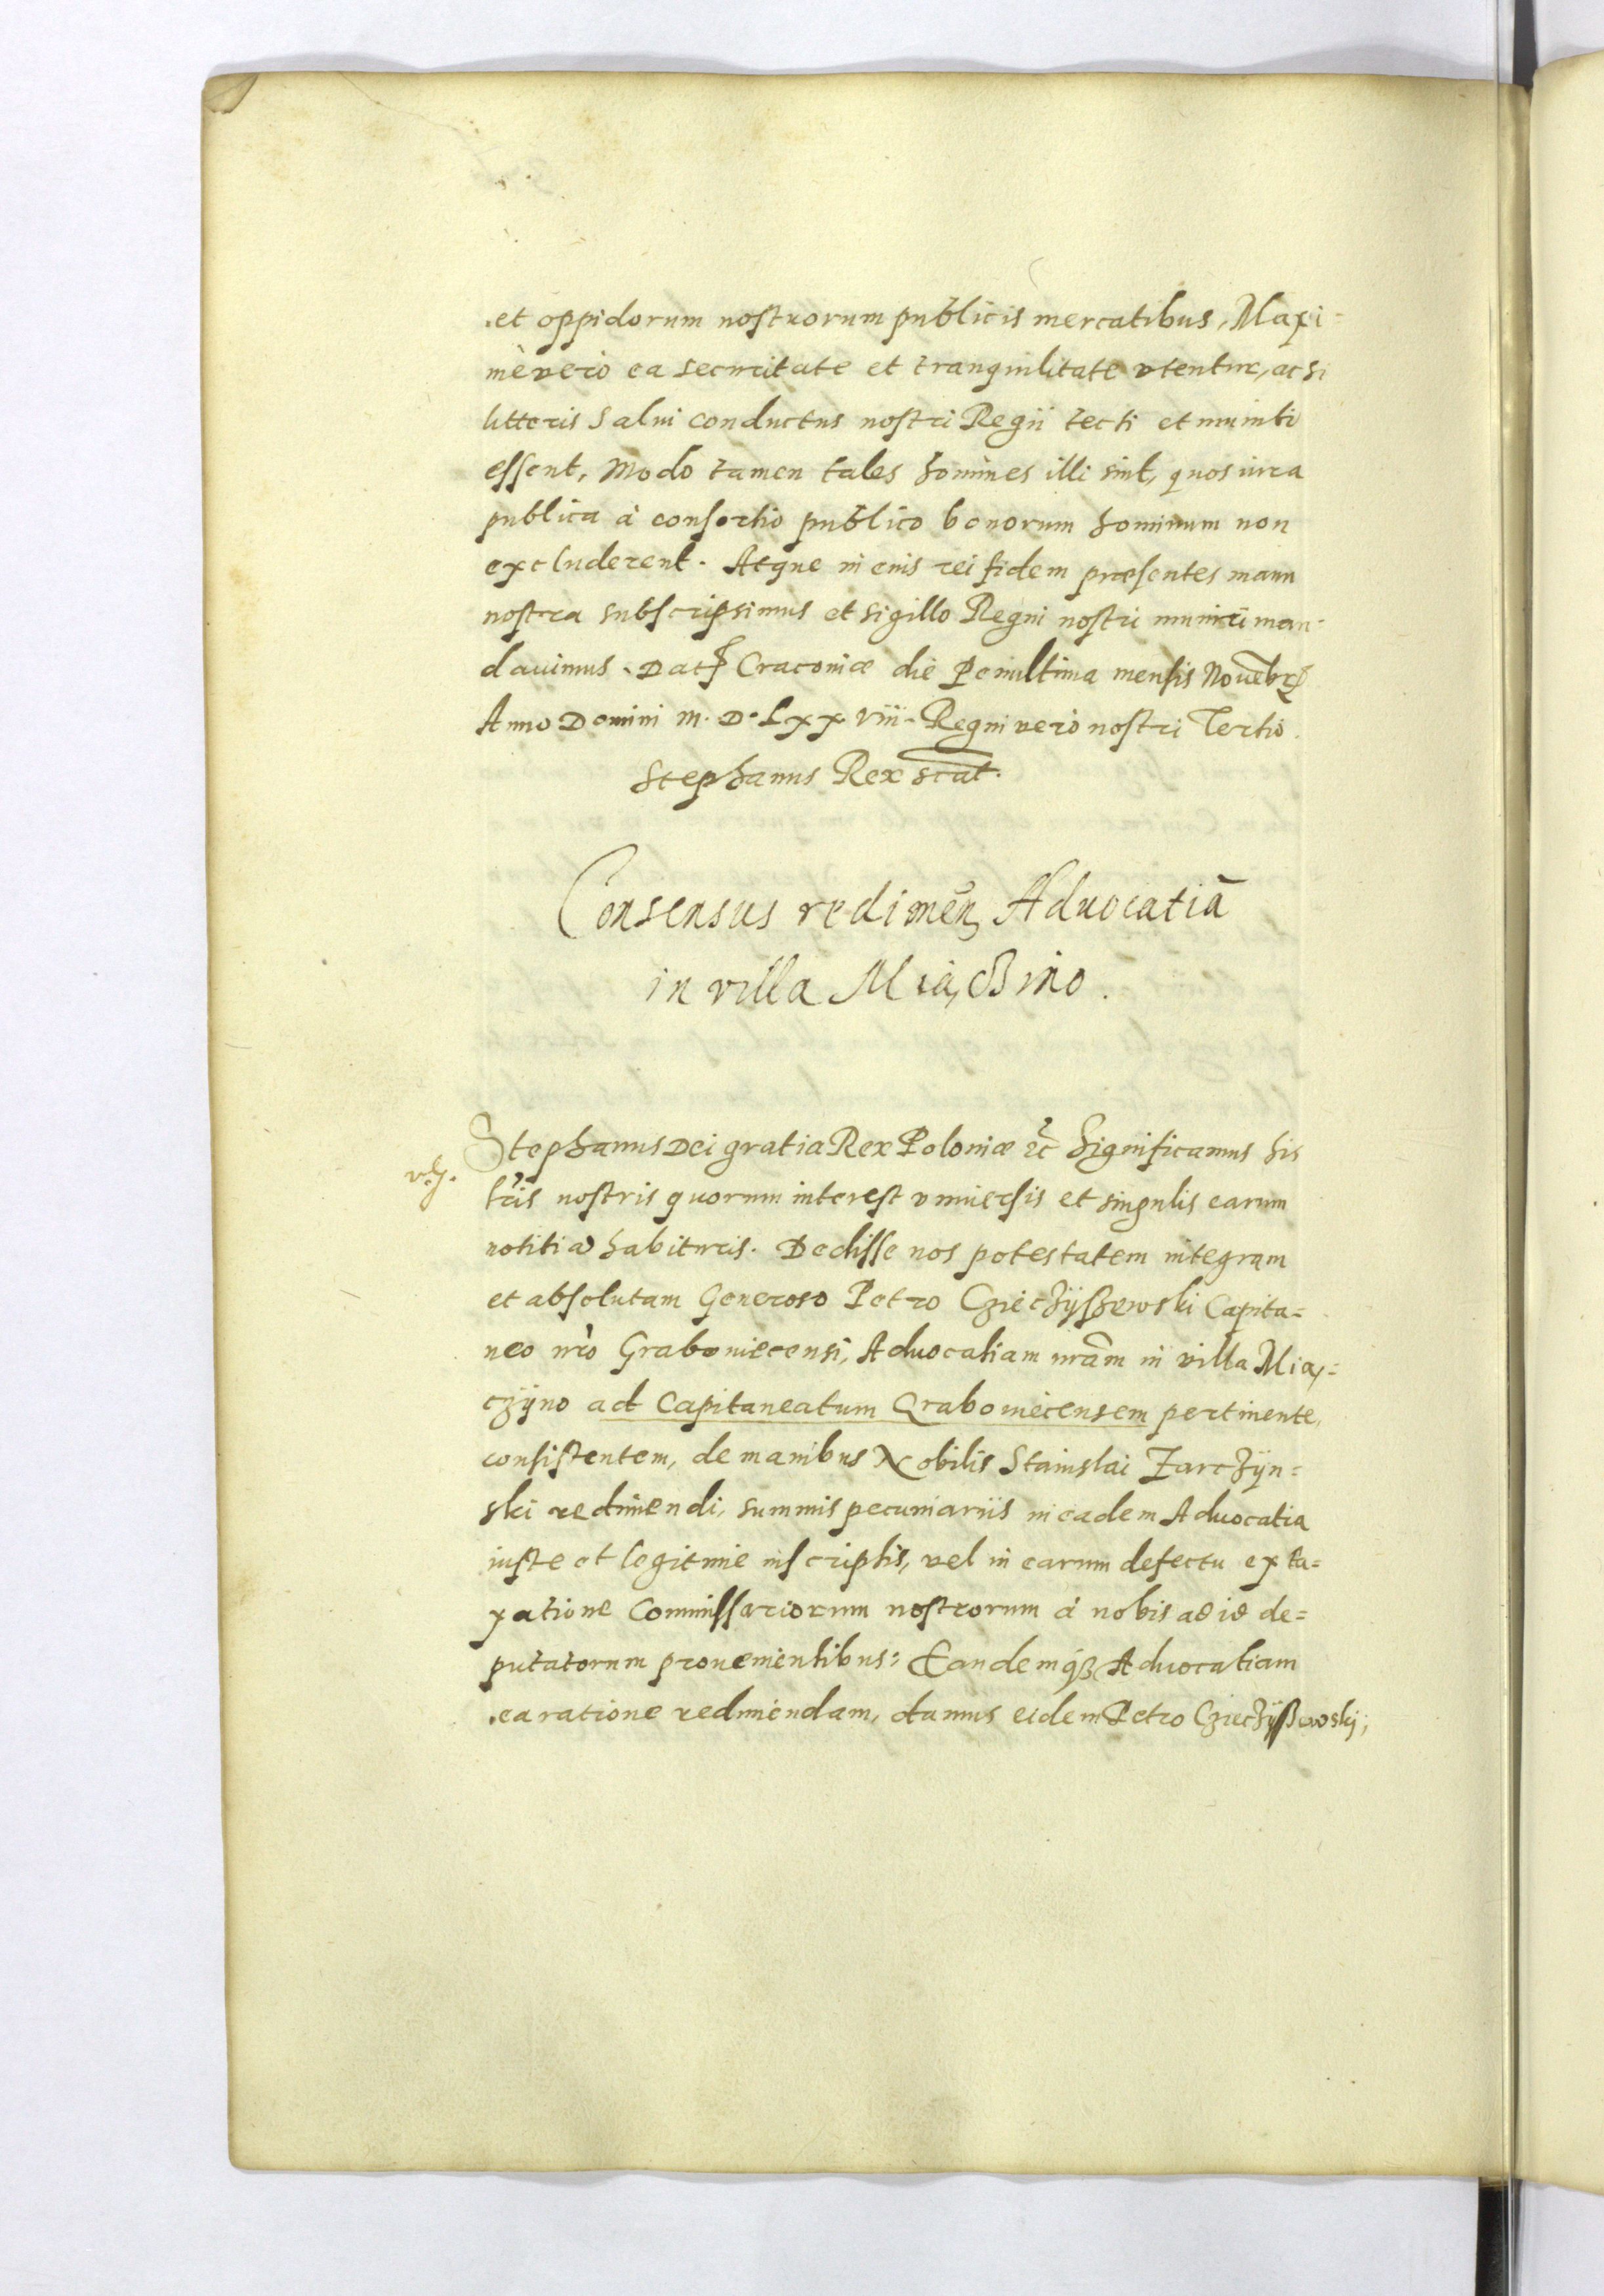 et oppidorum nostrorum publicis mercatibus, Maxi=
mè verò ea securitate et tranquilitate vtentur, ac si
litteris Salui conductus nostri Regii tecti et muniti
essent, Modo tamen tales homines illi sint, quos iura
publica à consortio publico bonorum hominum non
excluderent. Atque in eius rei fidem præsentes manu
nostra subscripsimus et sigillo Regni nostri muniri man-
dauimus. Dat Cracoviæ die Penultima mensis Novēbr
Anno Domini M. D. LXXVIII. Regni verò nostri Tertio.
Stephanus Rex scat.
Consensus redimēn Aduocatiā
in villa Miączino.
Stephanus Dei gratia Rex Poloniæ etc Significamus his
v. g.
lris nostris quorum interest vniuersis et singulis earum
notitiã habituris. Dedisse nos potestatem integram
et absolutam Generoso Petro Cziecżÿszewski Capita=
neo nro Graboviecensi, Aduocatiam nram in villa Mią=
czÿno ad Capitaneatum Graboviecensem pertinente,
consistentem, de manibus Nobilis Stanislai Zarczÿn=
ski redimendi, summis pecuniariis in eadem Aduocatia
iuste et legitime inscriptis, vel in earum defectu ex ta=
xatione Commissariorum nostrorum à nobis ad id de=
putatorum prouenientibus: Eandemq3 Aduocatiam
ea ratione redimendam, damus eidem Petro Czieczÿszewskj,